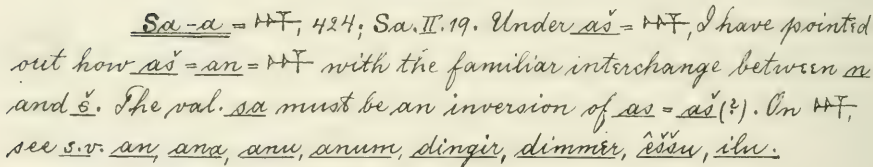 Sa-a = 𒀭, 424; Sa. II. 19. Under aš = 𒀭, I have pointed
out how aš = an = 𒀭 with the familiar interchange between n
and š. The val. sa must be an inversion of as = aš (?). On 𒀭,
see s.v. an, ana, anu, anum, dingir, dimmer, êššu, ilu.